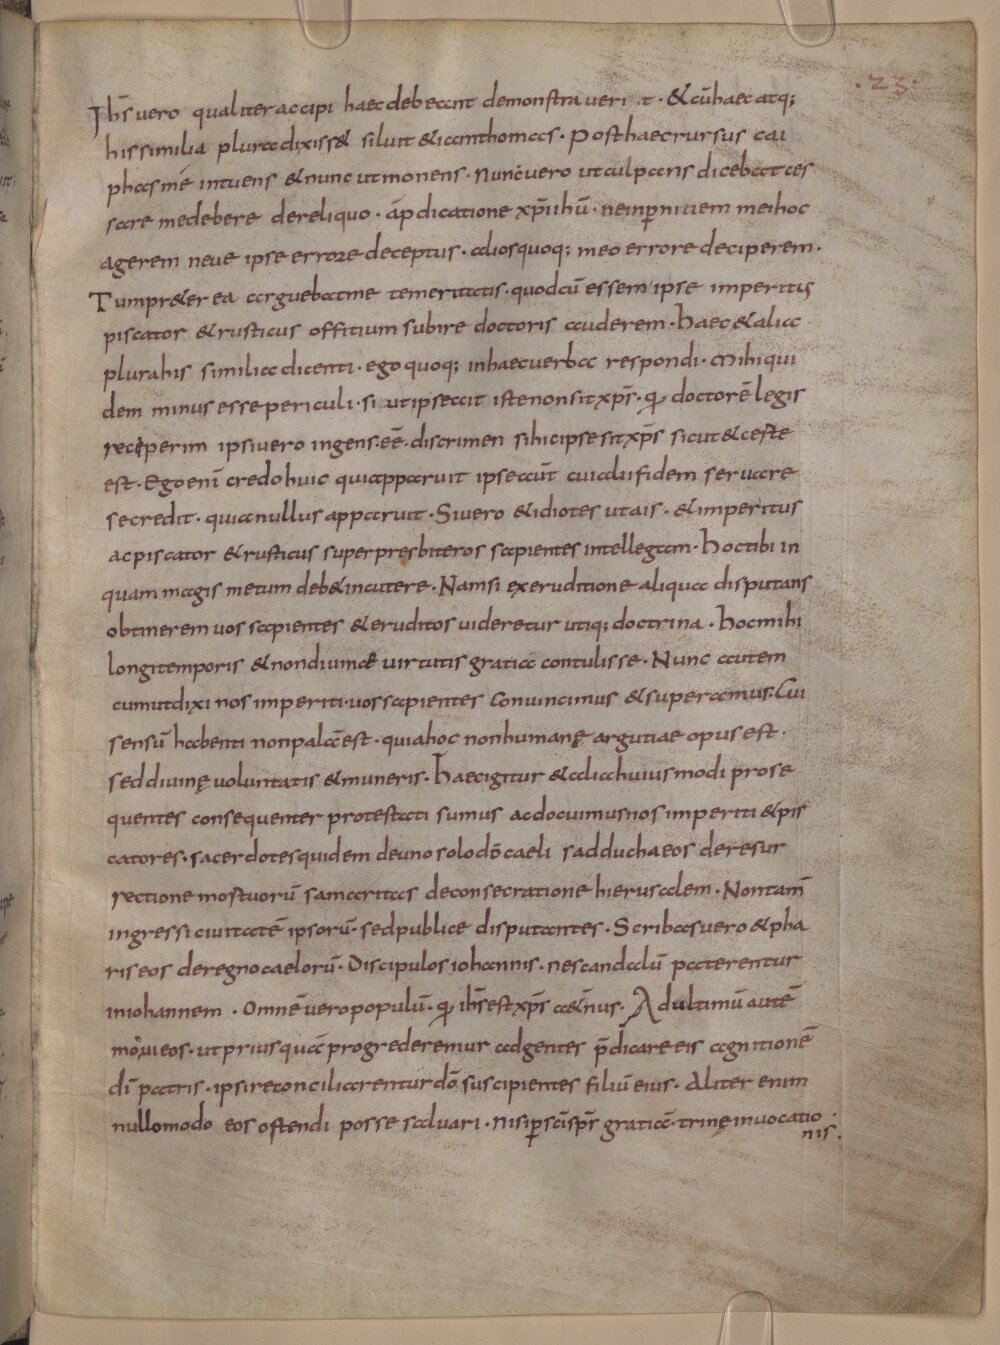 .23.
Ihs̄ vero qualiter accipi haec debeant demonstraveri t. & cū haec atq;
his similia plura dixiss& siluit & iam thomas. Post haec rursus cai
phas mē intuens & nunc ut monens. Nunc vero ut culpans dicebat ces
sare me debere derelíquo. āp̄dicatione xp̄i ihū. ne in p̱niciem mei hoc
agerem neve ipse errore deceptus. aliosquoq; meo errore deciperem.
Tum pr&er ea arguebat me temeritatis. quod cū essem ipse imperitus
piscator & rusticus offitium subire doctoris auderem. Haec & alia
plura his similia dicenti. ego quoq; in haec verba respondi. Mihi qui
dem minus esse periculi. si ut ipse ait iste non sit xp̄s. qđ doctorē legis
reciperim ipsi vero ingens eē. discrimen si hic ipse sit xp̄s sicut & ceste
est. Ego enī credo huic qui apparuit ipse aūt cui alii fidem servare
se credit. quia nullus apparuit. Si vero & idiotes ut ais. & imperitus
ac piscator & rusticus super presbiteros sapientes intellegam. Hoc tibi in
quam magis metum deb& incutere. Nam si ex eruditione aliqua disputans
obtinerem vos sapientes & eruditos videretur utiq; doctrina. Hoc mihi
longi temporis & non divinae virtutis gratia contulisse. Nunc autem
cum ut dixi nos imperiti vos sapientes convincimus & superamus. Cui
sensū habenti non palā est. quia hoc non humanę argutiae opus est.
sed divinę voluntatis & muneris. Haec igitur & alia huius modi prose
quentes consequenter protestati sumus ac docuimus nos imperiti & pis
catores. sacerdotes quidem de uno solo dō caeli sadduchaeos de resur
rectione mostuorū samaritas de consecratione hierusalem. Non tam̄
ingressi civitatē ipsorū. sed publice disputantes. Scribas vero & pha
riseos de regno caelorū. Discipulos iohannis. ne scandalū paterentur
in iohannem. Omnē vero populū. qđ ihs̄ est xp̄s a&ernus. Ad ultimū autē
monui eos. ut prius quā progrederemur ad gentes p̄dicare eis agnitionē
dī patris. ipsi reconciliarentur dō suscipientes filiū eius. Aliter enim
nullo modo eos ostendi posse salvari. nisi p̱ sc̄i sp̄s gratiā. trinę invocatio
nis.